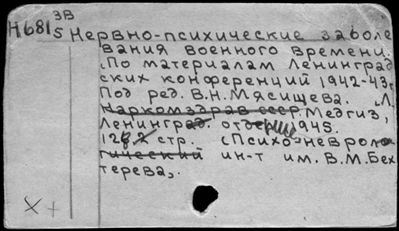 ЗВ
Н6815 Нервно-психические заболе
вания военного времени.
"По материалам Ленинград
ских конференций 1942-43г.
Под ред. В.Н.Мясищева. Л.
Наркомздрав СССР. Медгиз,
Ленинград. 1945.
стр. "Психо-невроло
гический ин-т им. В.М.Бех
терева".